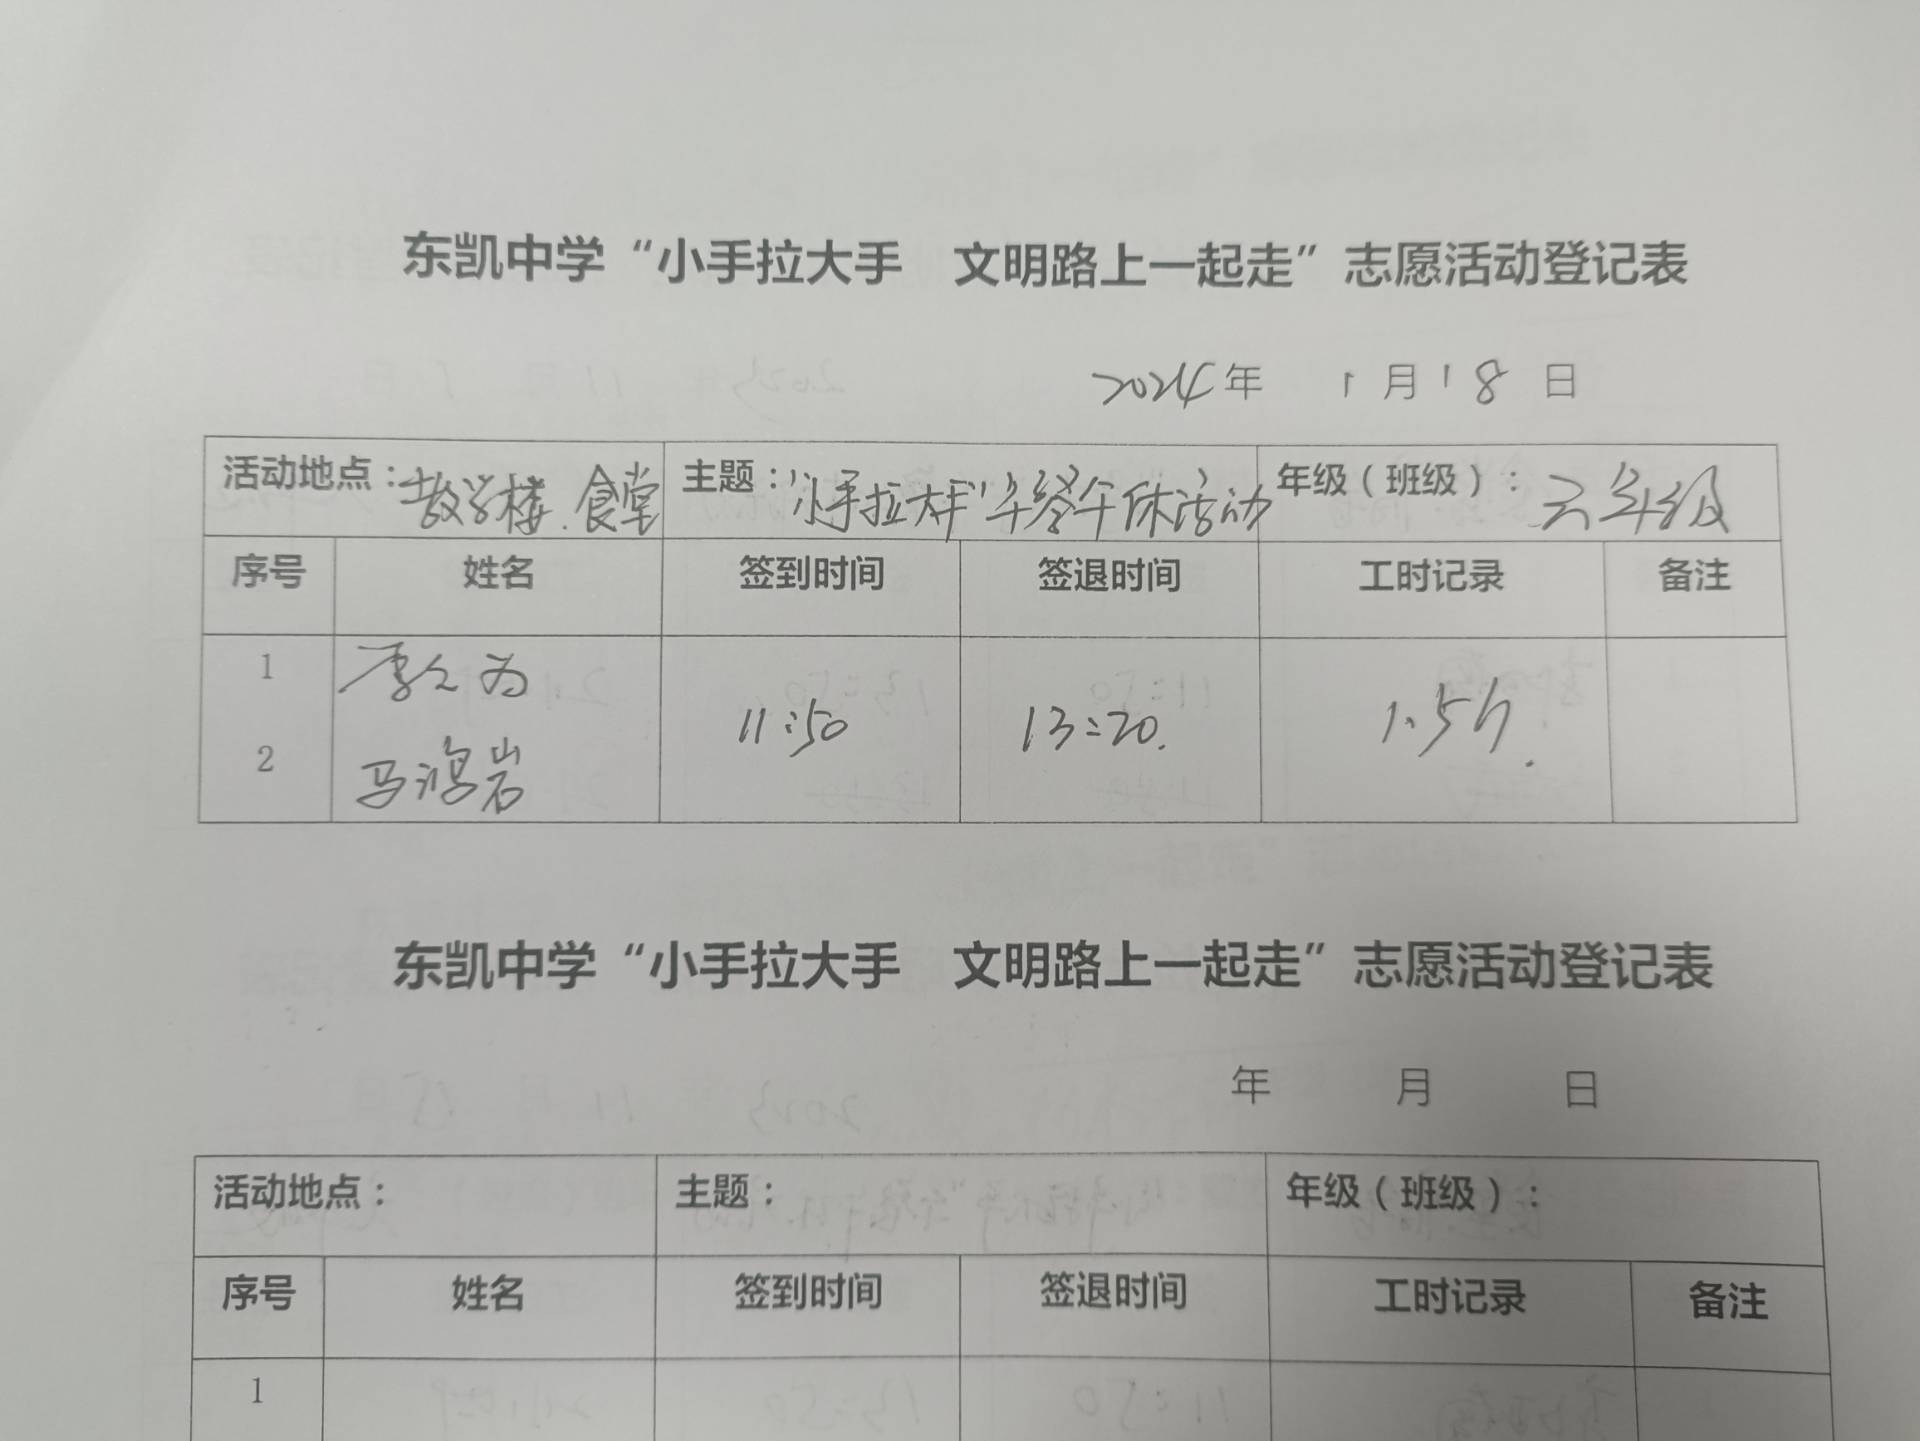 东凯中学“小手拉大手　文明路上一起走”志愿活动登记表
2024年 1月18日
活动地点：教学楼.食堂 主题：“小手拉大手”午餐午休活动 年级（班级）：六年级
序号 姓名 签到时间 签退时间 工时记录 备注
1 为
11:50 13:20. 1.5h.
2 马鸿岩
东凯中学“小手拉大手　文明路上一起走”志愿活动登记表
年 月 日
活动地点： 主题： 年级（班级）：
序号 姓名 签到时间 签退时间 工时记录 备注
1